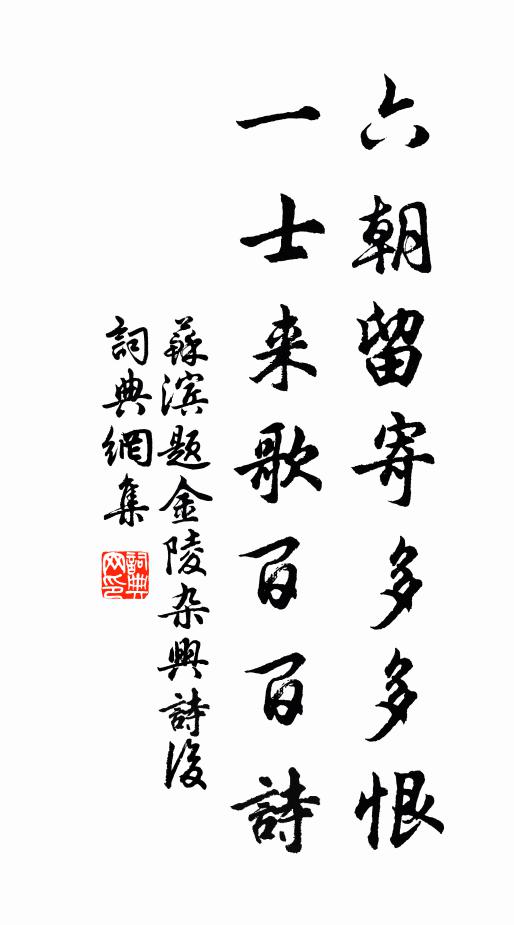 六朝留寄多多恨
一士来歌百百詩
蘇滨题金陵杂興詩後
詞典網集
詞典网印